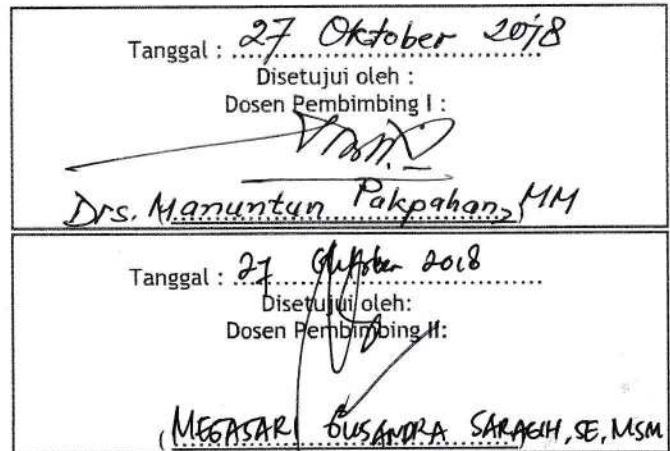 Tanggal : 27 Oktober 2018
Disetujui oleh :
Dosen Pembimbing I :
Drs. Manuntun Pakpahan, MM
Tanggal : 27 Oktober 2018
Disetujui oleh:
Dosen Pembimbing II:
(MEGASARI GUSANDRA SARAGIH, SE, MSM